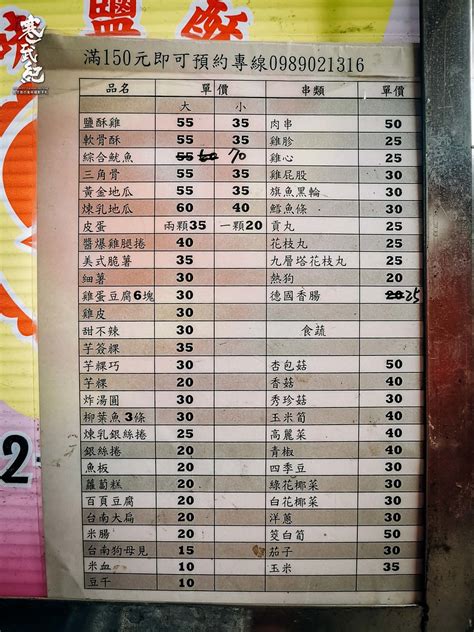 鹽酥
寒武紀
滿150元即可預約專線0989021316
品名 單價 串類 單價
大 小
鹽酥雞 55 35 肉串 50
軟骨酥 55 35 雞胗 25
綜合魷魚 55 60 70 雞心 25
三角骨 55 35 雞屁股 30
黃金地瓜 55 35 旗魚黑輪 30
煉乳地瓜 60 40 鱈魚條 30
皮蛋 兩顆35 一顆20 貢丸 25
醬爆雞腿捲 40 花枝丸 25
美式脆薯 35 九層塔花枝丸 25
細薯 30 熱狗 20
雞蛋豆腐6塊 30 德國香腸 20 25
雞皮 30
甜不辣 30 食蔬
芋簽粿 35
芋粿巧 30 杏包菇 50
芋粿 20 香菇 40
炸湯圓 30 秀珍菇 40
柳葉魚3條 30 玉米筍 40
煉乳銀絲捲 25 高麗菜 40
銀絲捲 20 青椒 40
魚板 20 四季豆 30
蘿蔔糕 20 綠花椰菜 30
百頁豆腐 20 白花椰菜 30
台南大扁 20 洋蔥 30
米腸 20 筊白筍 50
台南狗母見 15 茄子 30
米血 10 玉米 35
豆干 10
2